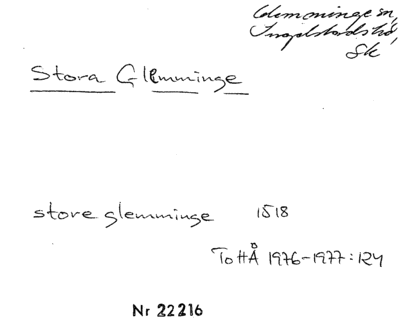 Glemminge sn,
Ingelstads hd,
Sk
Stora Glemminge
store glemminge 1518
ToHÅ 1976-1977:124
Nr 22216